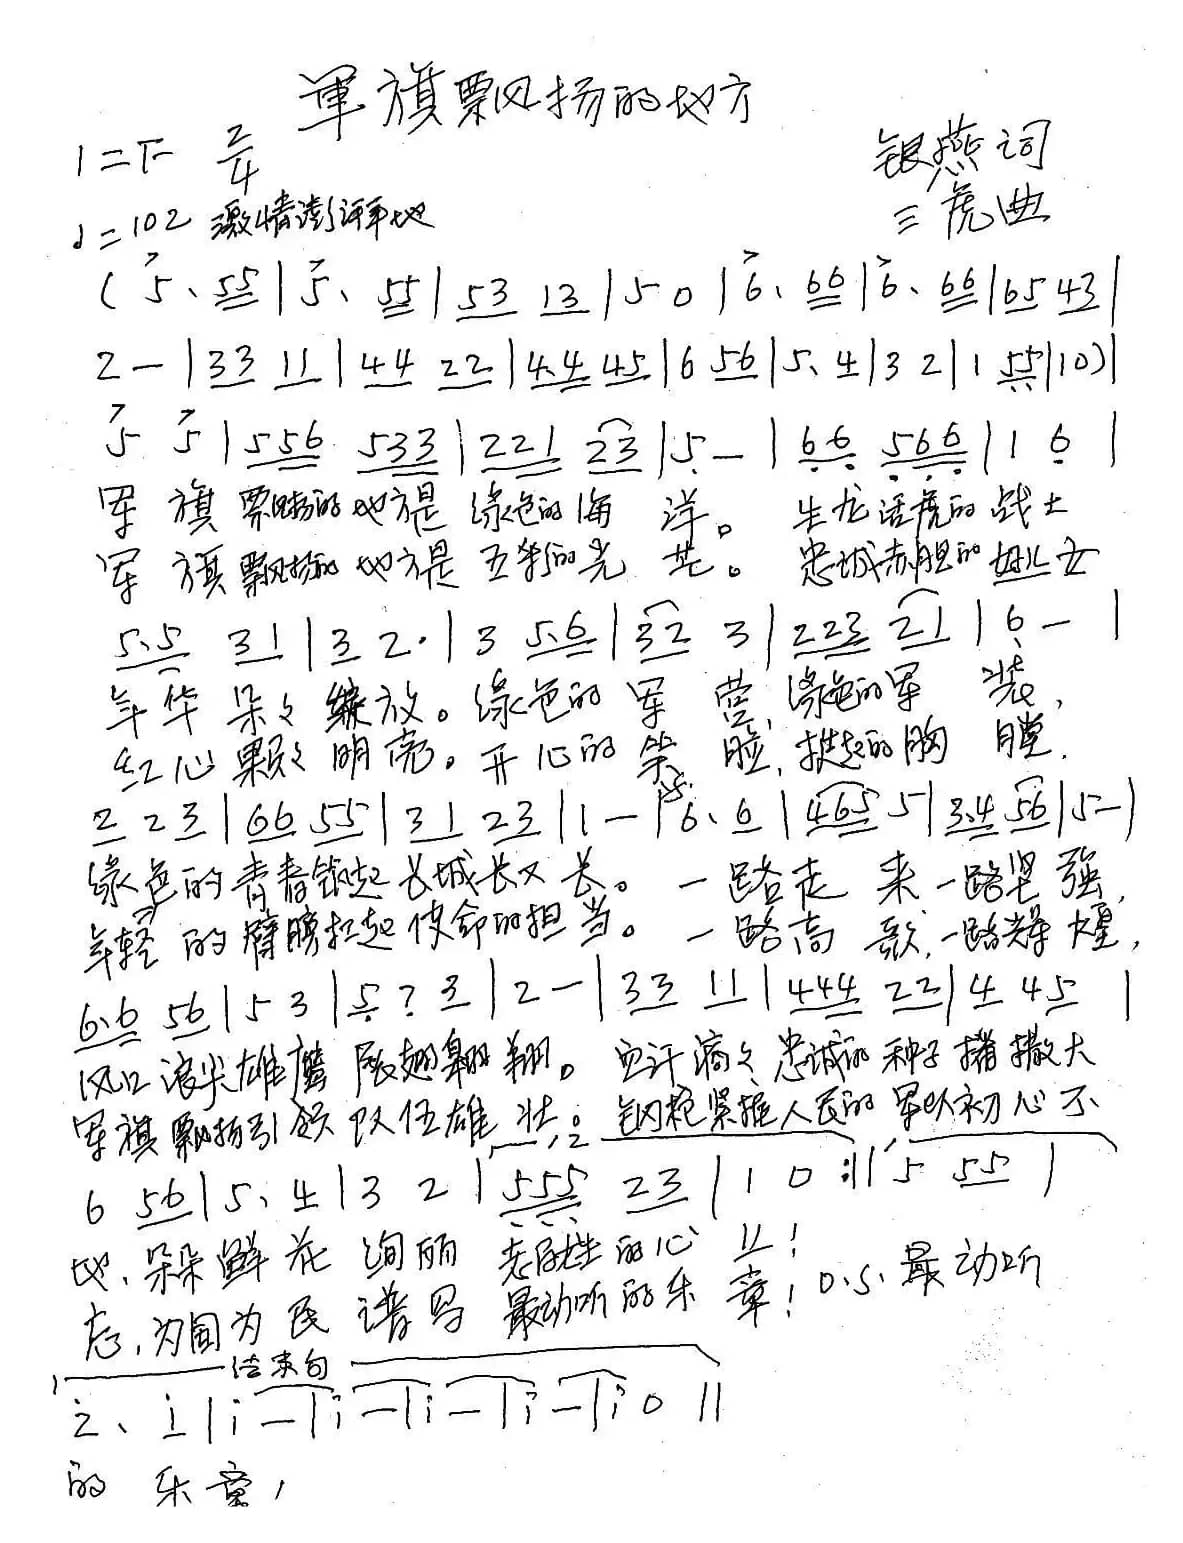 軍旗飘扬的地方
1=F 2/4
银燕词
♩=102 激情澎湃地
三虎曲
(5、55|5、55|53 13|5 0|6、66|6、66|65 43|
2－|33 11|44 22|4.4 45|6 56|5、4|3 2|1 55|10)|
5 5|556 533|221 23|5－|66 566|1 6|
军旗飘扬的地方是绿色的海洋。生龙活虎的战士
军旗飘扬的地方是五彩的光芒。忠诚赤胆的好儿女
5.5 31|3 2·|3 5.6|32 3|223 21|6－|
年华朵々绽放。绿色的军营,绿色的军装,
红心颗々明亮。开心的笑脸,挺起的胸膛,
2 2 3|66 55|31 23|1－|6、6|465 5|3.4 56|5－|
绿色的青春筑起长城长又长。一路走来一路坚强,
年轻的臂膀扛起使命的担当。一路高歌,一路辉煌,
6.6 56|5 3|5 ? 3|2－|33 11|444 22|4 45|
风口浪尖雄鹰展翅翱翔。血汗滴々忠诚的种子播撒大
军旗飘扬引领队伍雄壮。钢枪紧握人民的军队初心不
6 56|5、4|3 2|555 23|1 0:||5 55|
地、朵朵鲜花绚丽老百姓的心上!
忘,为国为民谱写最动听的乐章! D.S. 最动听
结束句
2、1|1－|1－|1－|1－|1 0||
的乐章!